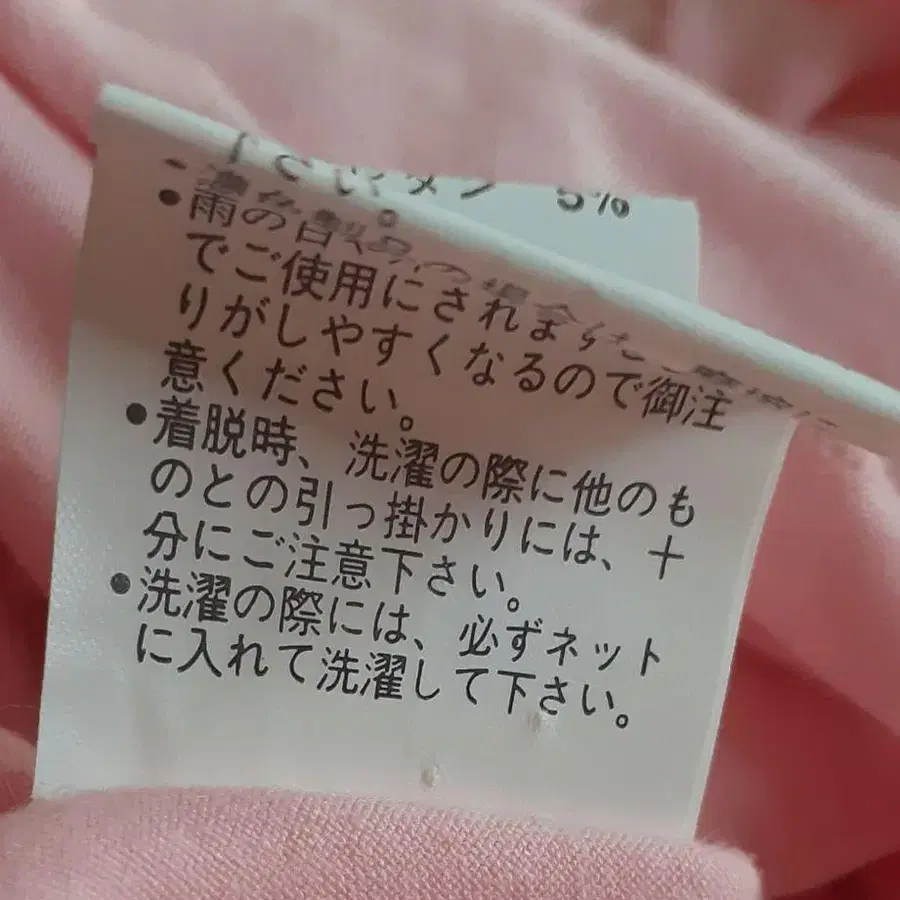 下さい。
タン 5%
●雨の日
でご使用にされま
りがしやすくなるので御注
意ください。
●着脱時、洗濯の際に他のも
のとの引っ掛かりには、十
分にご注意下さい。
●洗濯の際には、必ずネット
に入れて洗濯して下さい。